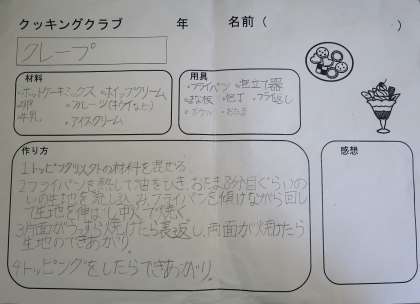 クッキングクラブ 年 名前( )
クレープ
材料
・ホットケーキミックス ・ホイップクリーム
・卵 ・フルーツ(キウイなど)
・牛乳 ・アイスクリーム
用具
・フライパン ・泡立て器
・まな板 ・包丁 ・フライ返し
・ボウル ・おたま
作り方
1 トッピング以外の材料を混ぜる。
2 フライパンを熱して油をひき、おたま8分目ぐらいの
いの生地を流し込み、フライパンを傾けながら回し
て生地を伸ばし中火で焼く
3 片面がうっすら焼けたら裏返し、両面が焼けたら
生地のできあがり。
4 トッピングをしたらできあがり。
感想